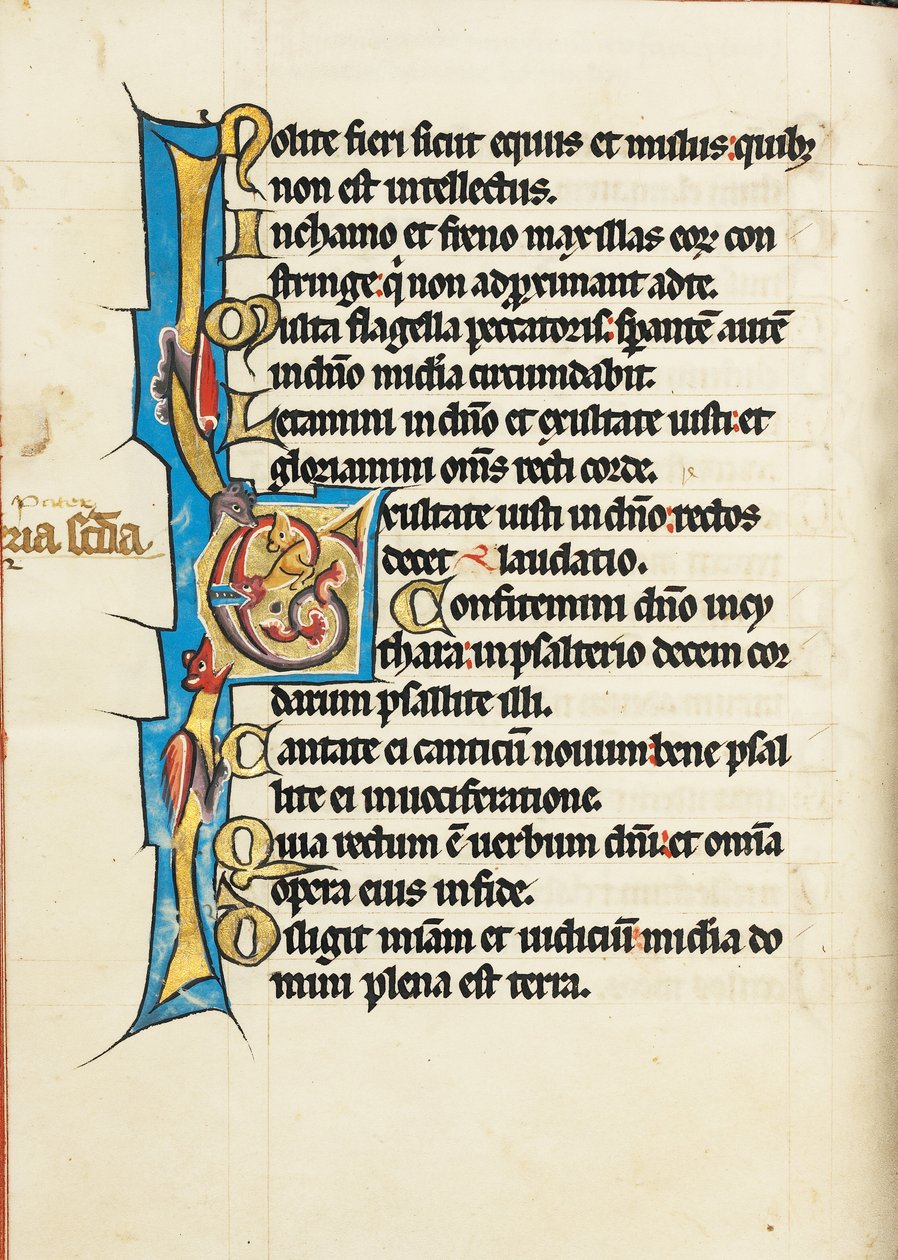 Nolite fieri sicut equus et mulus: quibꝫ
non est intellectus.
In chamo et freno maxillas eoꝝ con
stringe: qͥ non adp̱ximant ad te.
Multa flagella peccatoris: sꝑantē autē
in dn̄o mīcd̄ia circumdabit.
Letamini in dn̄o et exultate iusti: et
gloriamini om̄s recti corde.
Exultate iusti in dn̄o: rectos
decet laudatio.
Confitemini dn̄o in cy
thara: in psalterio decem cor
darum psallite illi.
Cantate ei canticū nouum: bene psal
lite ei in uociferatione.
Quia rectum ē uerbum dn̄i: et omīa
opera eius in fide.
Diligit miām et iudiciū: mīcd̄ia do
mini plena est terra.
pater
ria scd̄a